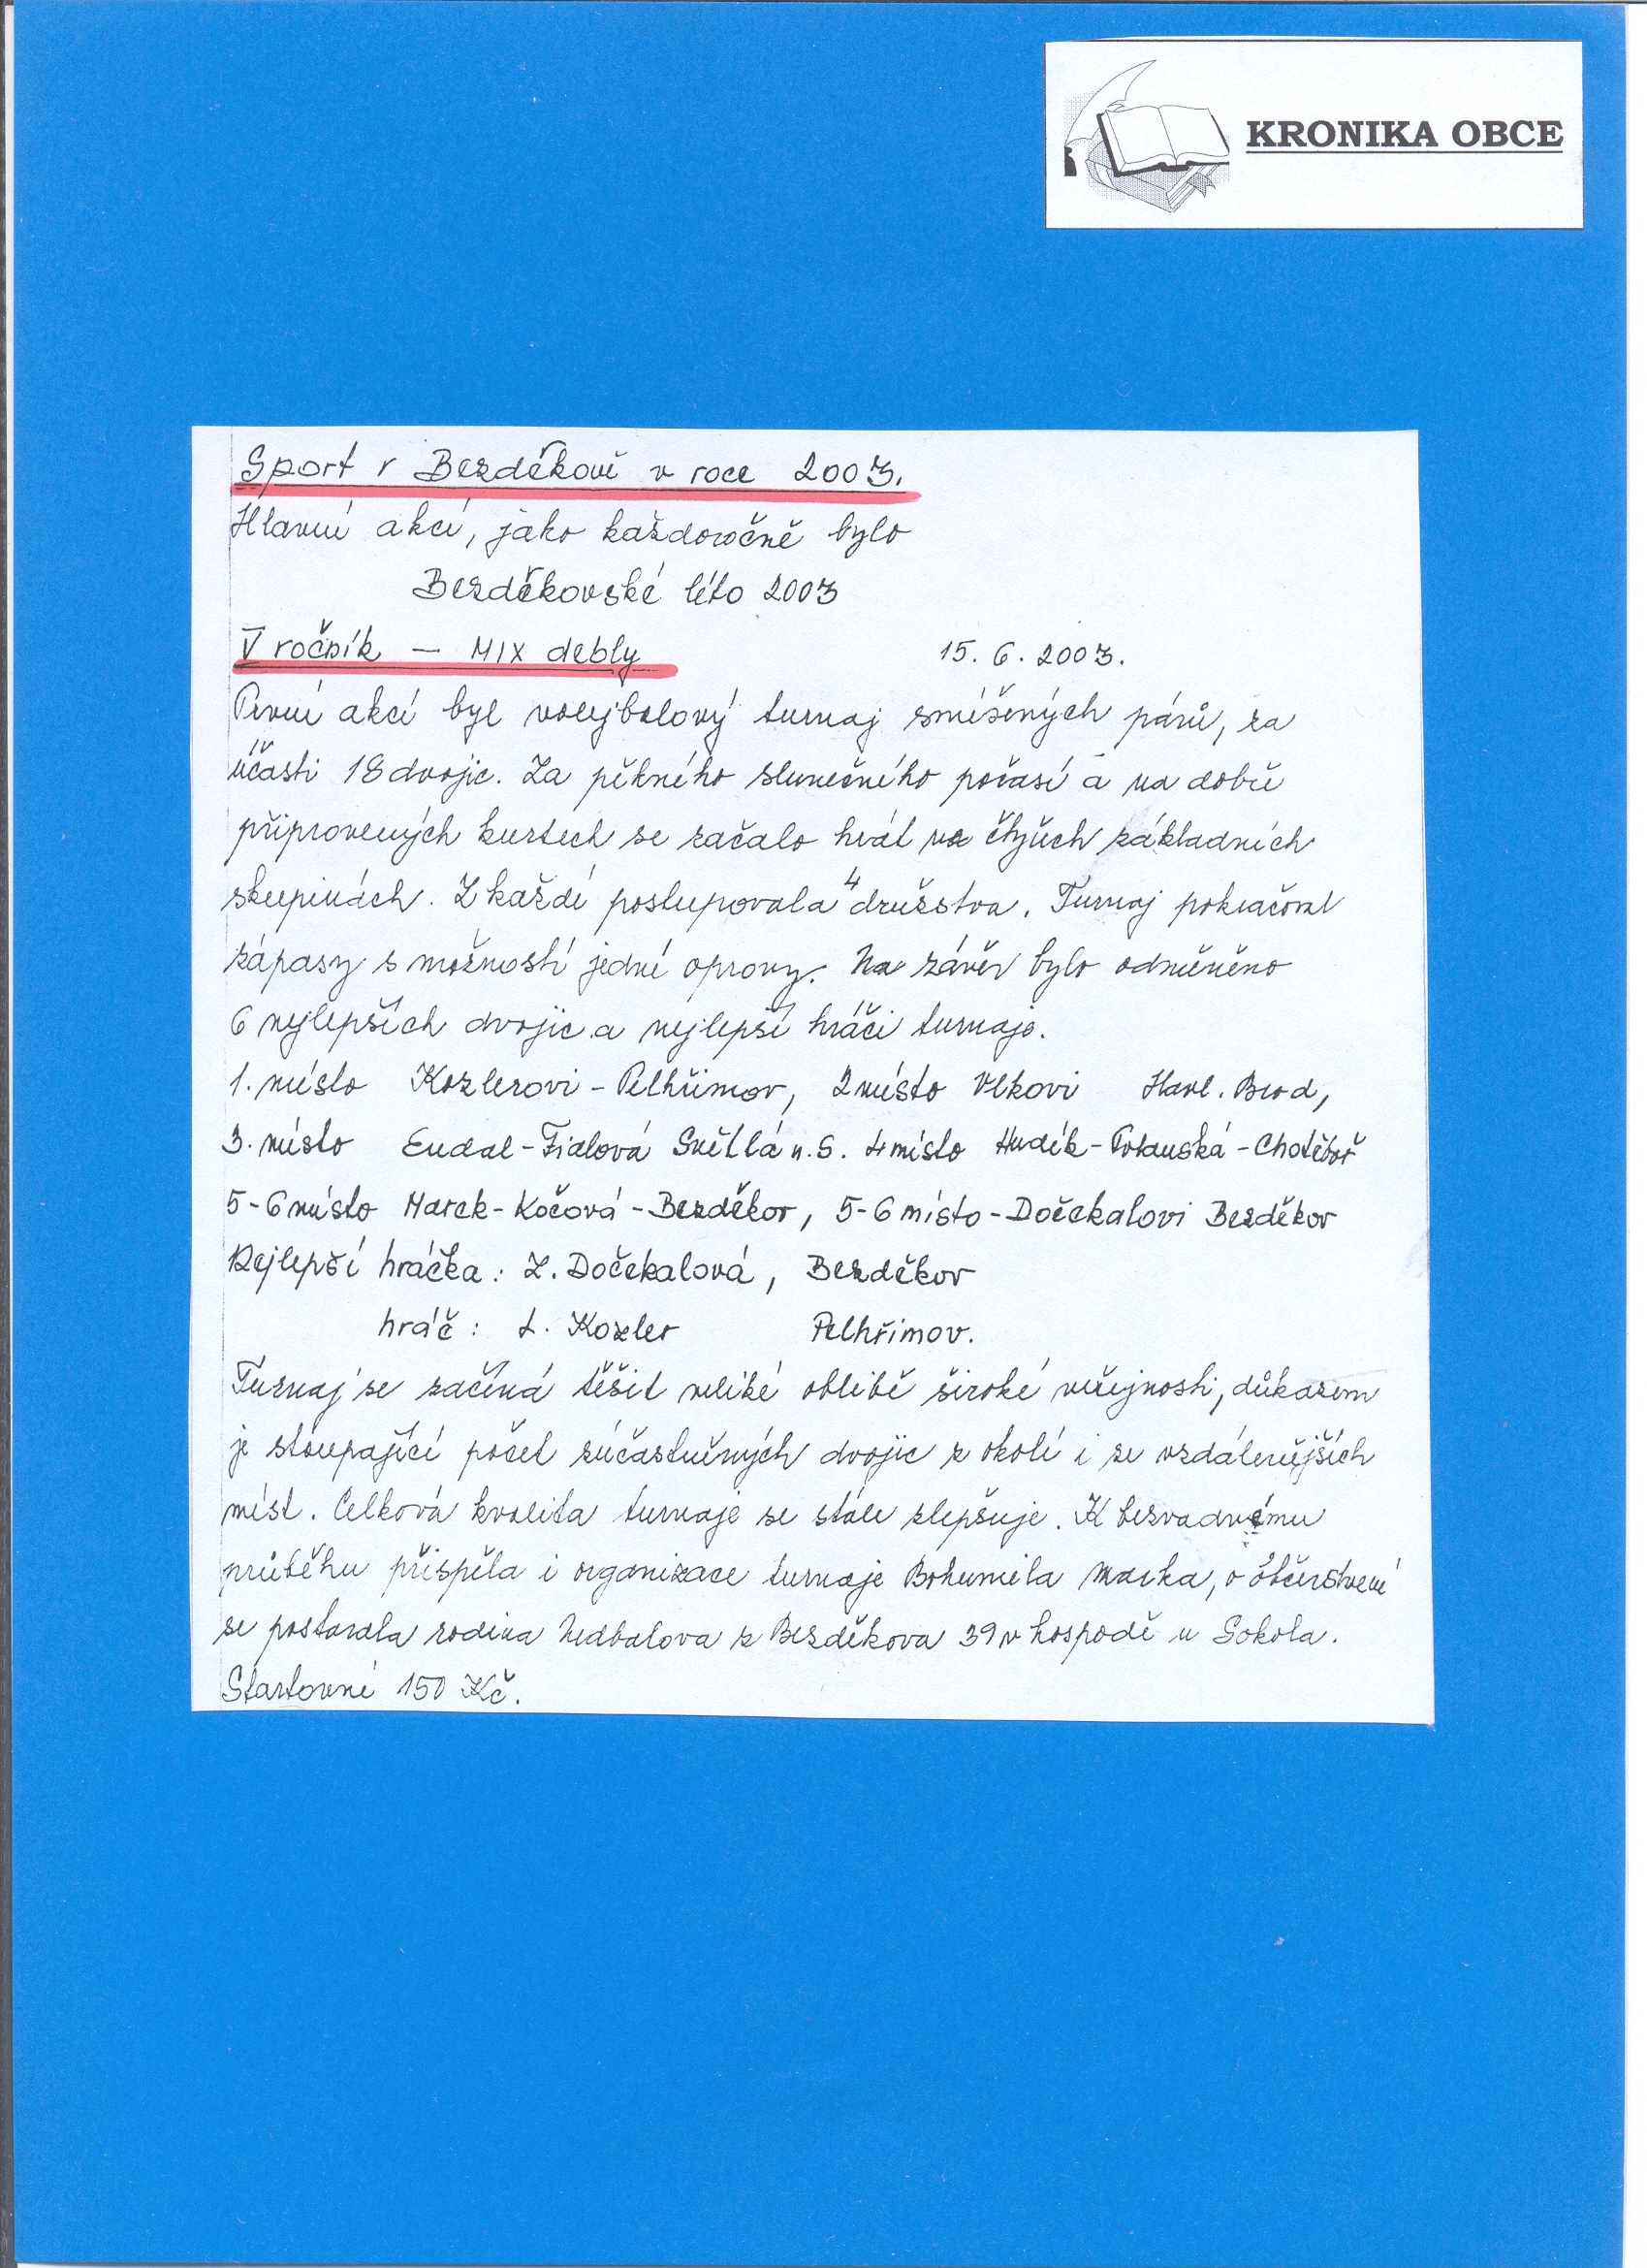 KRONIKA OBCE
Sport v Bezděkově v roce 2003.
Hlavní akcí, jako každoročně bylo
Bezděkovské léto 2003
V ročník – MIX debly 15. 6. 2003.
První akcí byl volejbalový turnaj smíšených párů, za
účasti 18 dvojic. Za pěkného slunečného počasí a na dobře
připravených kurtech se začalo hrát ve čtyřech základních
skupinách. Z každé postupovala 4 družstva. Turnaj pokračoval
zápasy s možností jedné opravy. Na závěr bylo odměněno
6 nejlepších dvojic a nejlepší hráči turnaje.
1. místo Kozlerovi - Pelhřimov, 2 místo Vlkovi Havl. Brod,
3. místo Eudal - Fialová Světlá n. S. 4 místo Hudík - - Chotěboř
5-6 místo Marek - Kočová - Bezděkov, 5-6 místo - Dočekalovi Bezděkov
Nejlepší hráčka: Z. Dočekalová, Bezděkov
hráč: L. Kozler Pelhřimov.
Turnaj se začíná těšit veliké oblibě široké veřejnosti, důkazem
je stoupající počet zúčastněných dvojic z okolí i ze vzdálenějších
míst. Celková kvalita turnaje se stále zlepšuje. K bezvadnému
průběhu přispěla i organizace turnaje Bohumila Marka, o občerstvení
se postarala rodina Nedbalova z Bezděkova 39 v hospodě u Sokola.
Startovné 150 Kč.